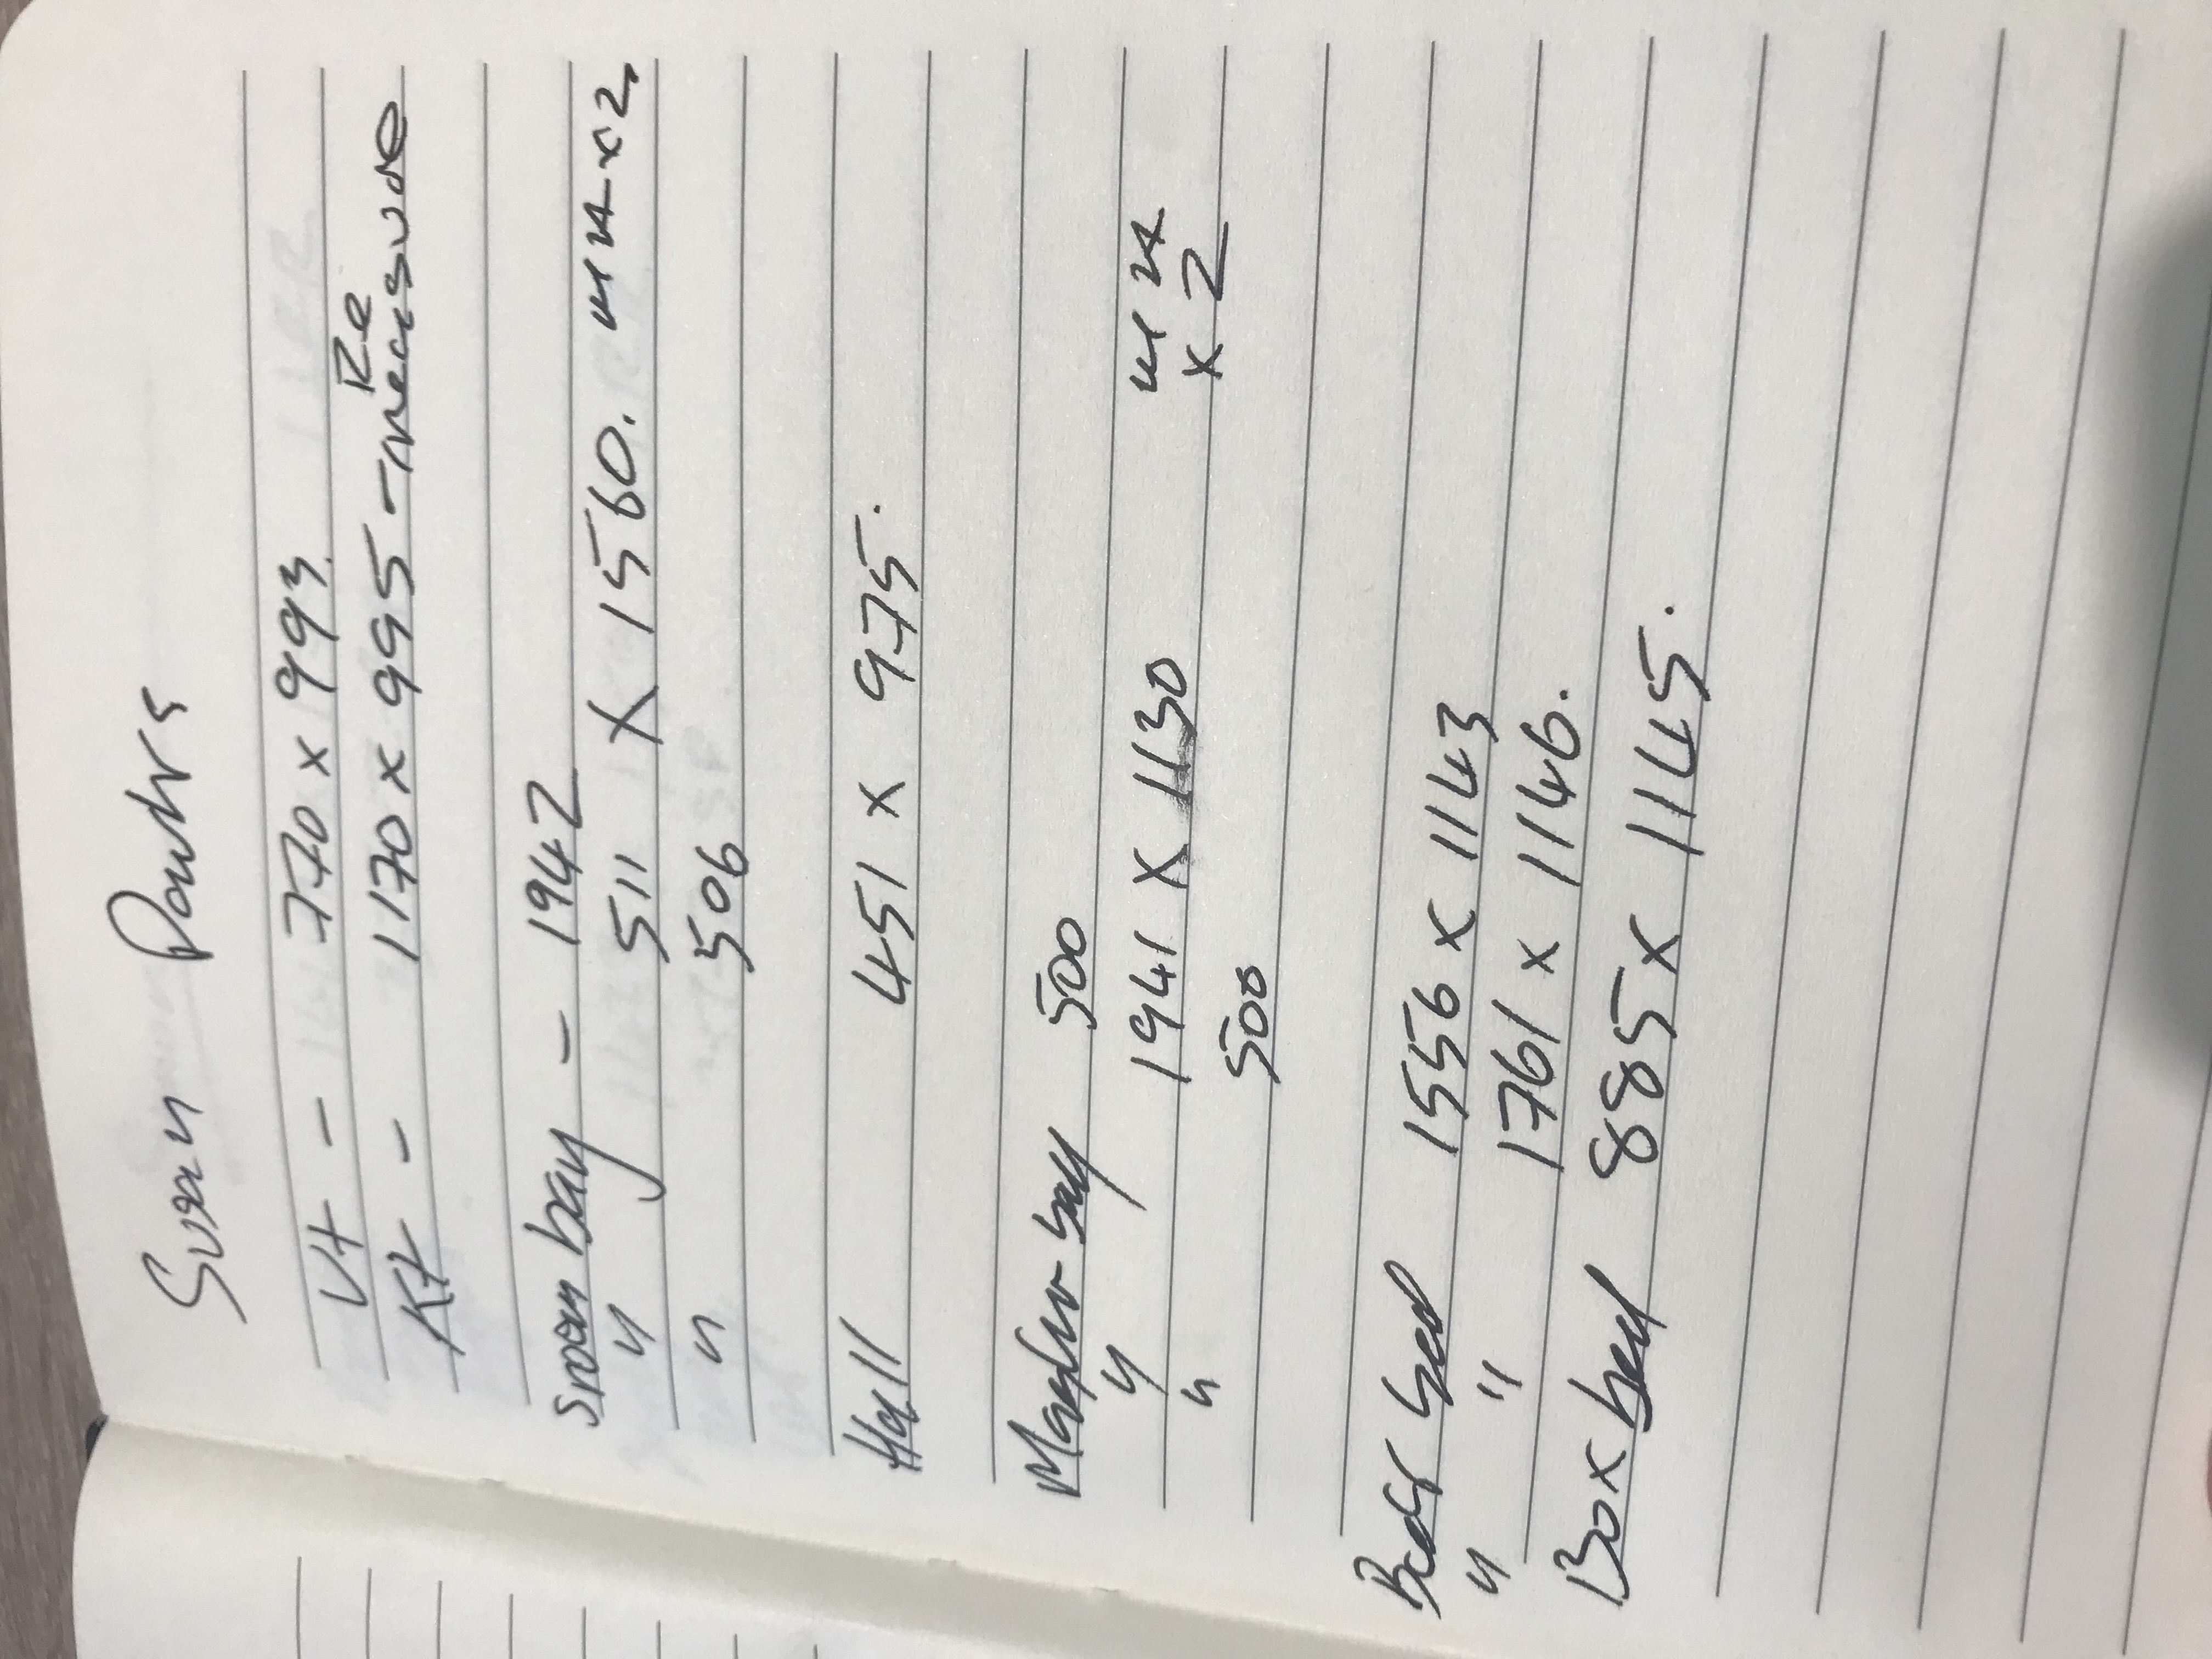 Susan
Ut - 770 x 993.
Kt - 1170 x 995 - Re measure
Sroom bay - 1942
" 511 X 1560. x2,
" 506
Hall 451 x 975.
Master bay 500
" 1941 X 1130
" 500 x 2
Back bed 1556 x 1143
" " 1761 x 1146.
Box bed 885 x 1145.